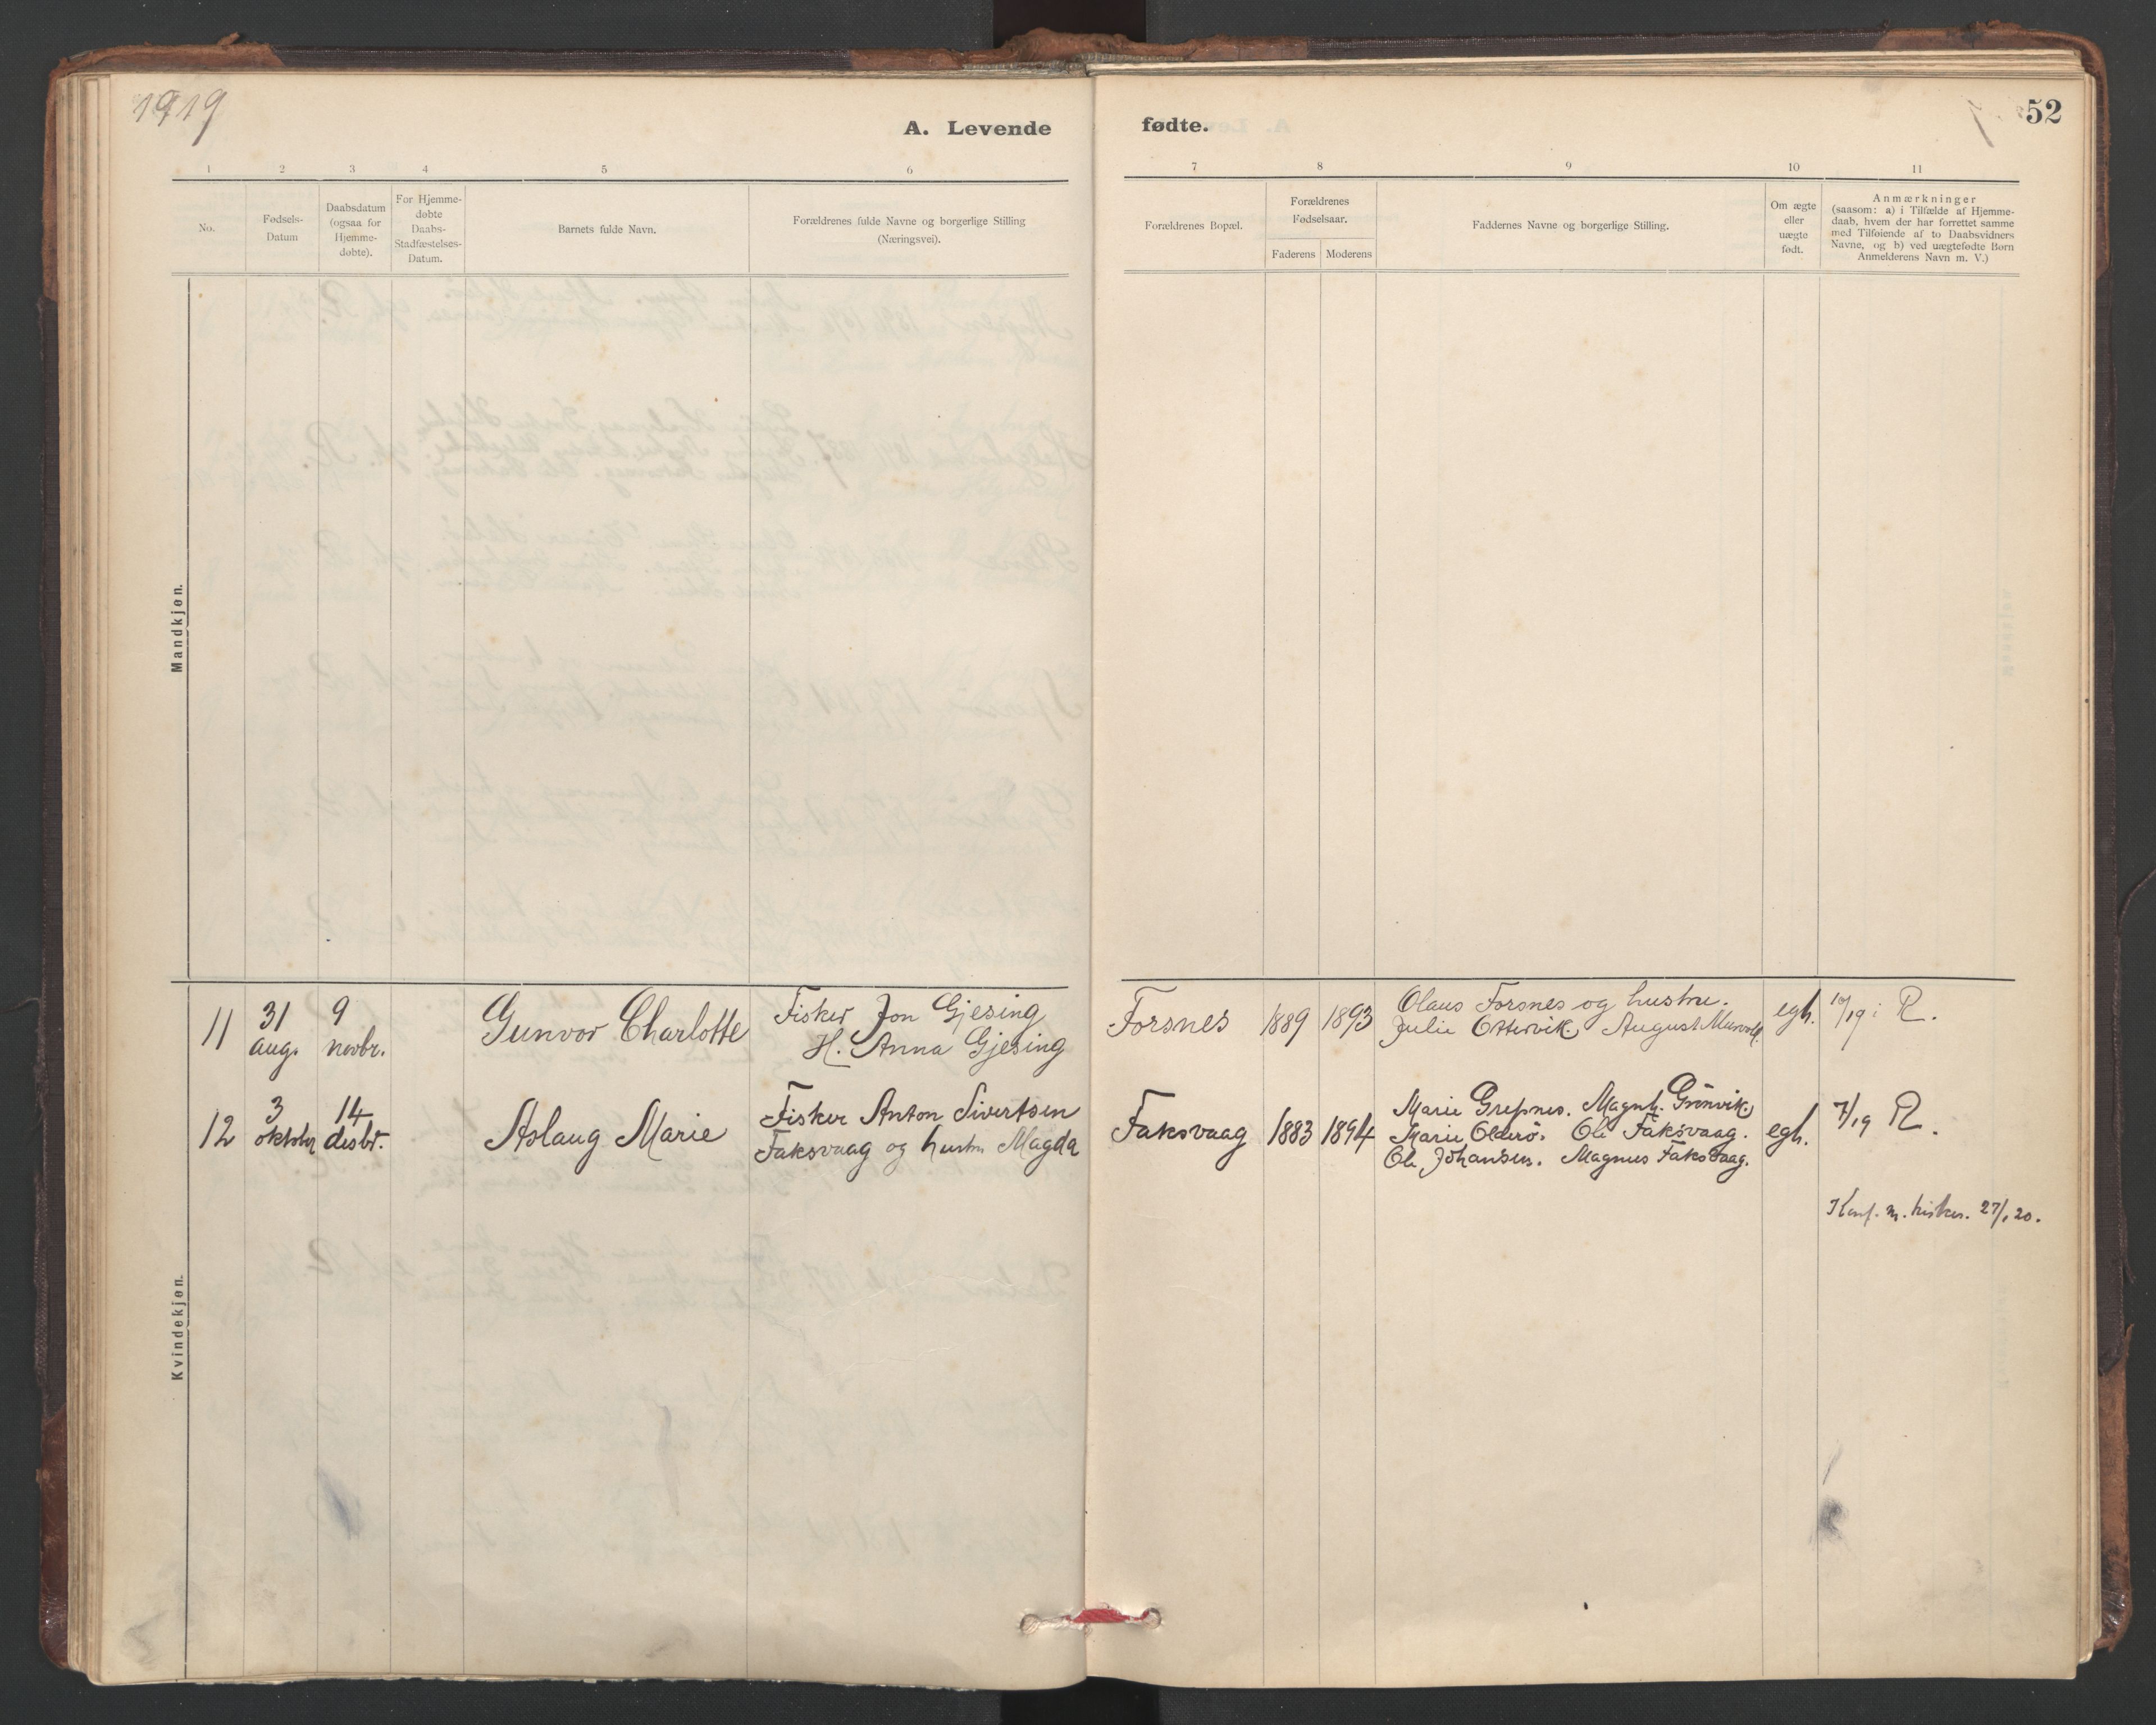 1919
A. Levende
fødte.
52
1 2 3 4 5 6
7 8 9 10 11
No.
Fødsels-
Datum
Daabsdatum
(ogsaa for
Hjemme-
døbte).
For Hjemme-
døbte
Daabs-
Stadfæstelses-
Datum.
Barnets fulde Navn.
Forældrenes fulde Navne og borgerlige Stilling
(Næringsvei).
Forældrenes Bopæl.
Forældrenes
Fødselsaar.
Faderens Moderens
Faddernes Navne og borgerlige Stilling.
Om ægte
eller
uægte
født.
Anmærkninger
(saasom: a) i Tilfælde af Hjemme-
daab, hvem der har forrettet samme
med Tilføiende af to Daabsvidners
Navne, og b) ved uægtefødte Børn
Anmelderens Navn m. V.)
Mandkjøn.
Kvindekjøn.
11
31
aug.
9
novbr.
Gunvor Charlotte
Fisker Jon Gjesing
H. Anna Gjesing
Forsnes
1889 1893
Olaus Forsnes og hustru.
Julie Ottervik. August
egh.
R.
12
3
oktober
14
desbr.
Aslaug Marie
Fisker Anton Sivertsen
Faksvaag og hustru Magda
Faksvaag
1883 1894
Marie Grefsnes. Magnh. Grönvik.
Marie Olderö. Ole Faksvaag.
Ole Johansen. Magnus Faksvaag.
egh.
7/19 R.
Konf. m. kirken. 27/1 20.